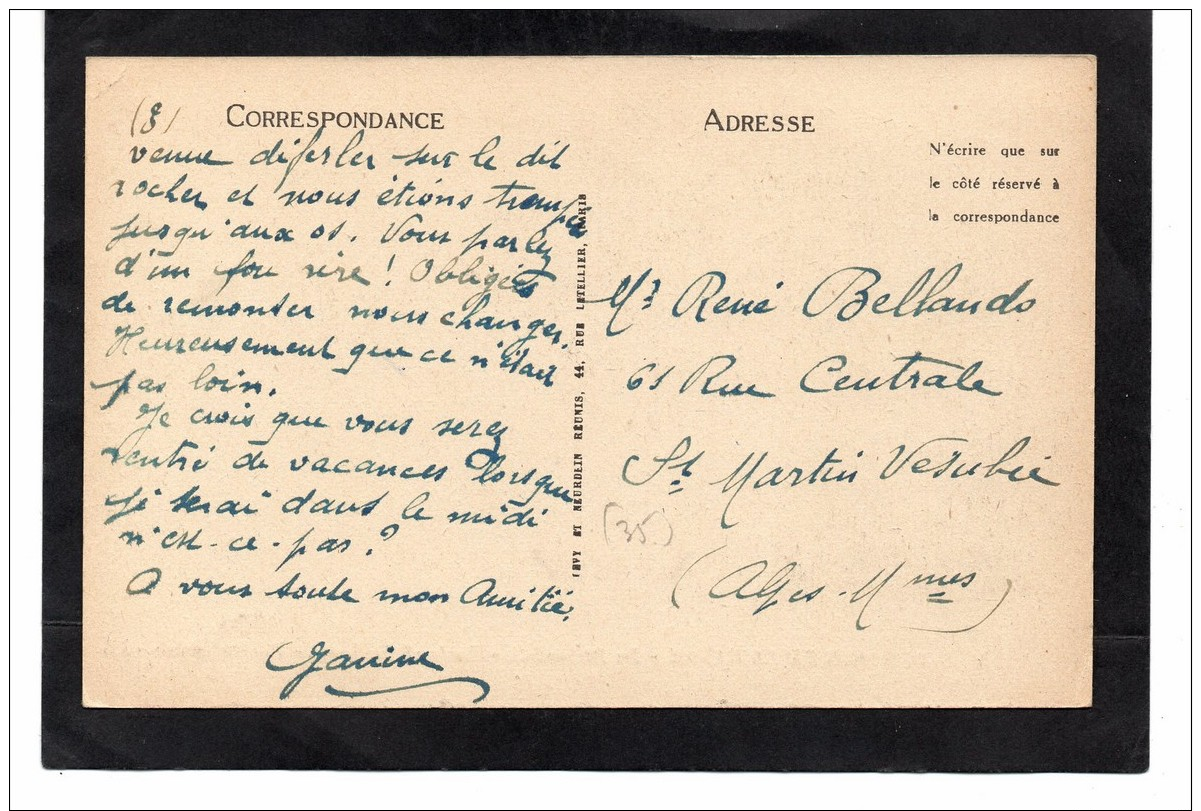 (3)
CORRESPONDANCE
venue déferler sur le dit
rocher et nous étions trempés
jusqu'aux os. Vous parlez
d'un fou rire ! Obligées
de remonter nous changer.
Heureusement que ce n'était
pas loin.
Je crois que vous serez
rentré de vacances lorsque
je serai dans le midi
n'est-ce-pas ?
A vous toute mon Amitié.
Janine
LEVY ET NEURDEIN RÉUNIS, 44, RUE LETELLIER, PARIS
ADRESSE
N'écrire que sur
le côté réservé à
la correspondance
Mr René Bellando
61 Rue Centrale
St Martin Vesubie
(35)
(Alpes-Mmes)